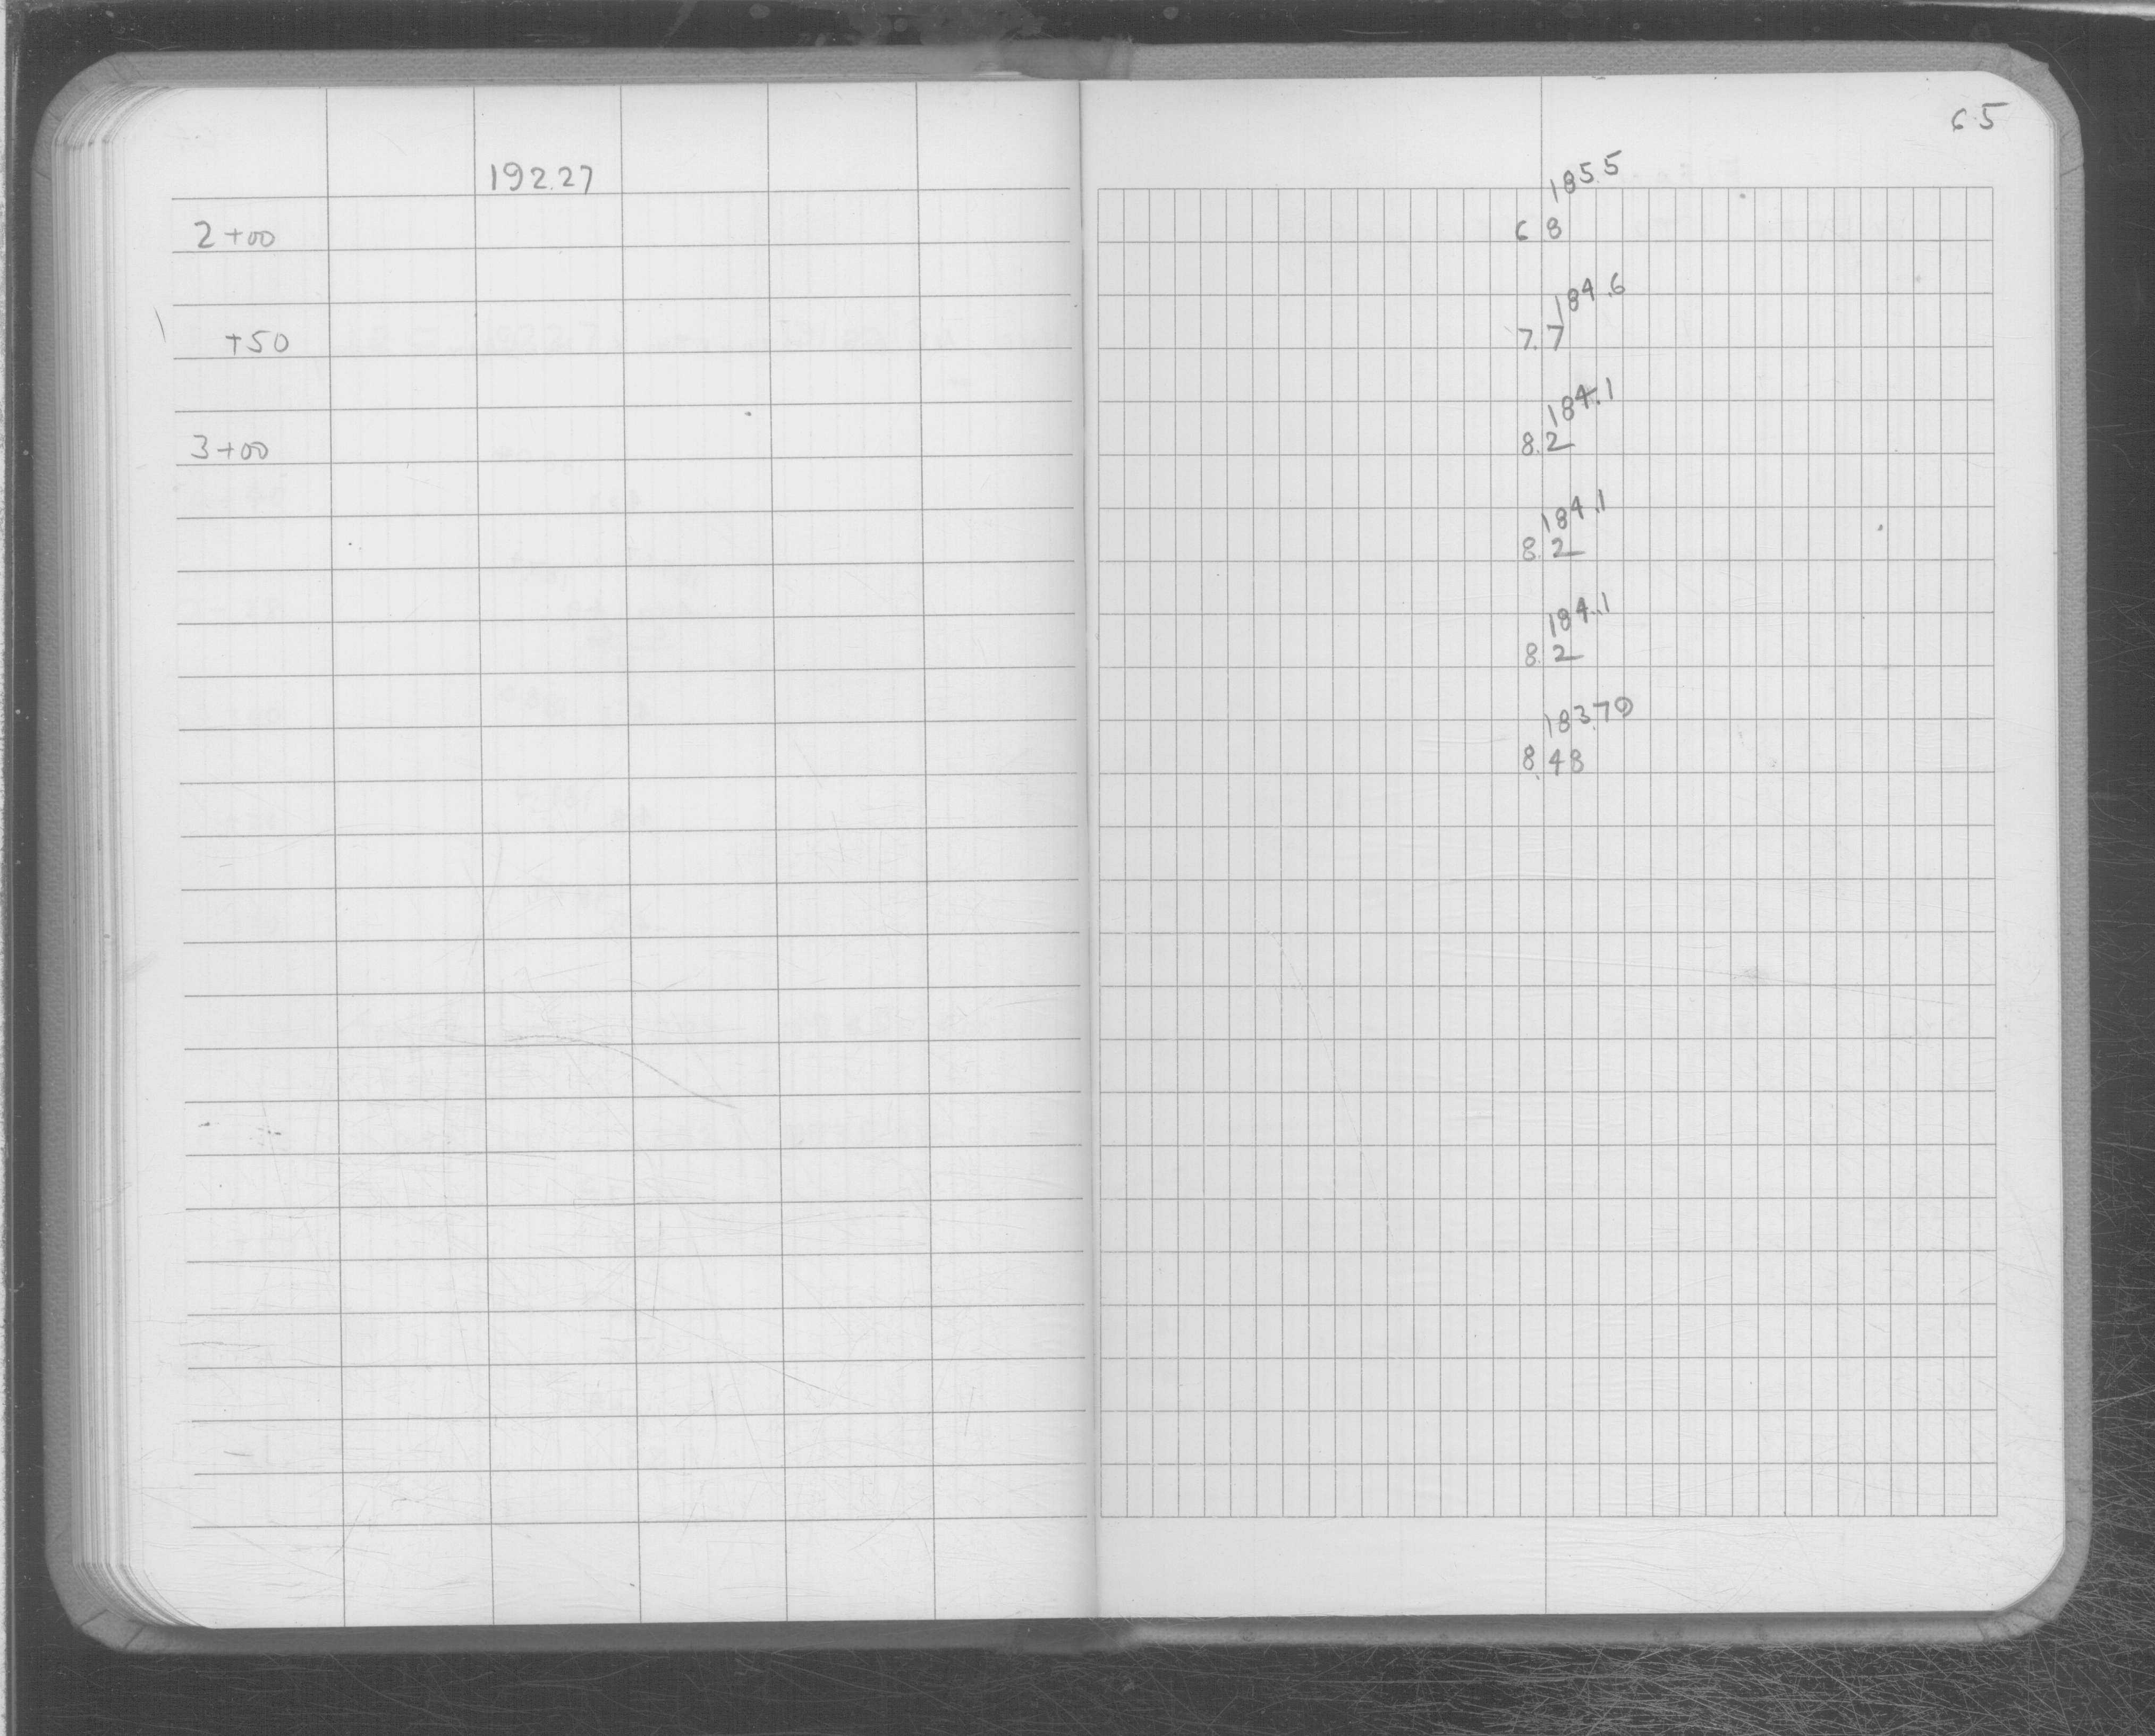 65
192.27
185.5
2+00
6 8
184.6
+50
7.7
184.1
3+00
8.2
184.1
8.2
184.1
8.2
183.79
8.48